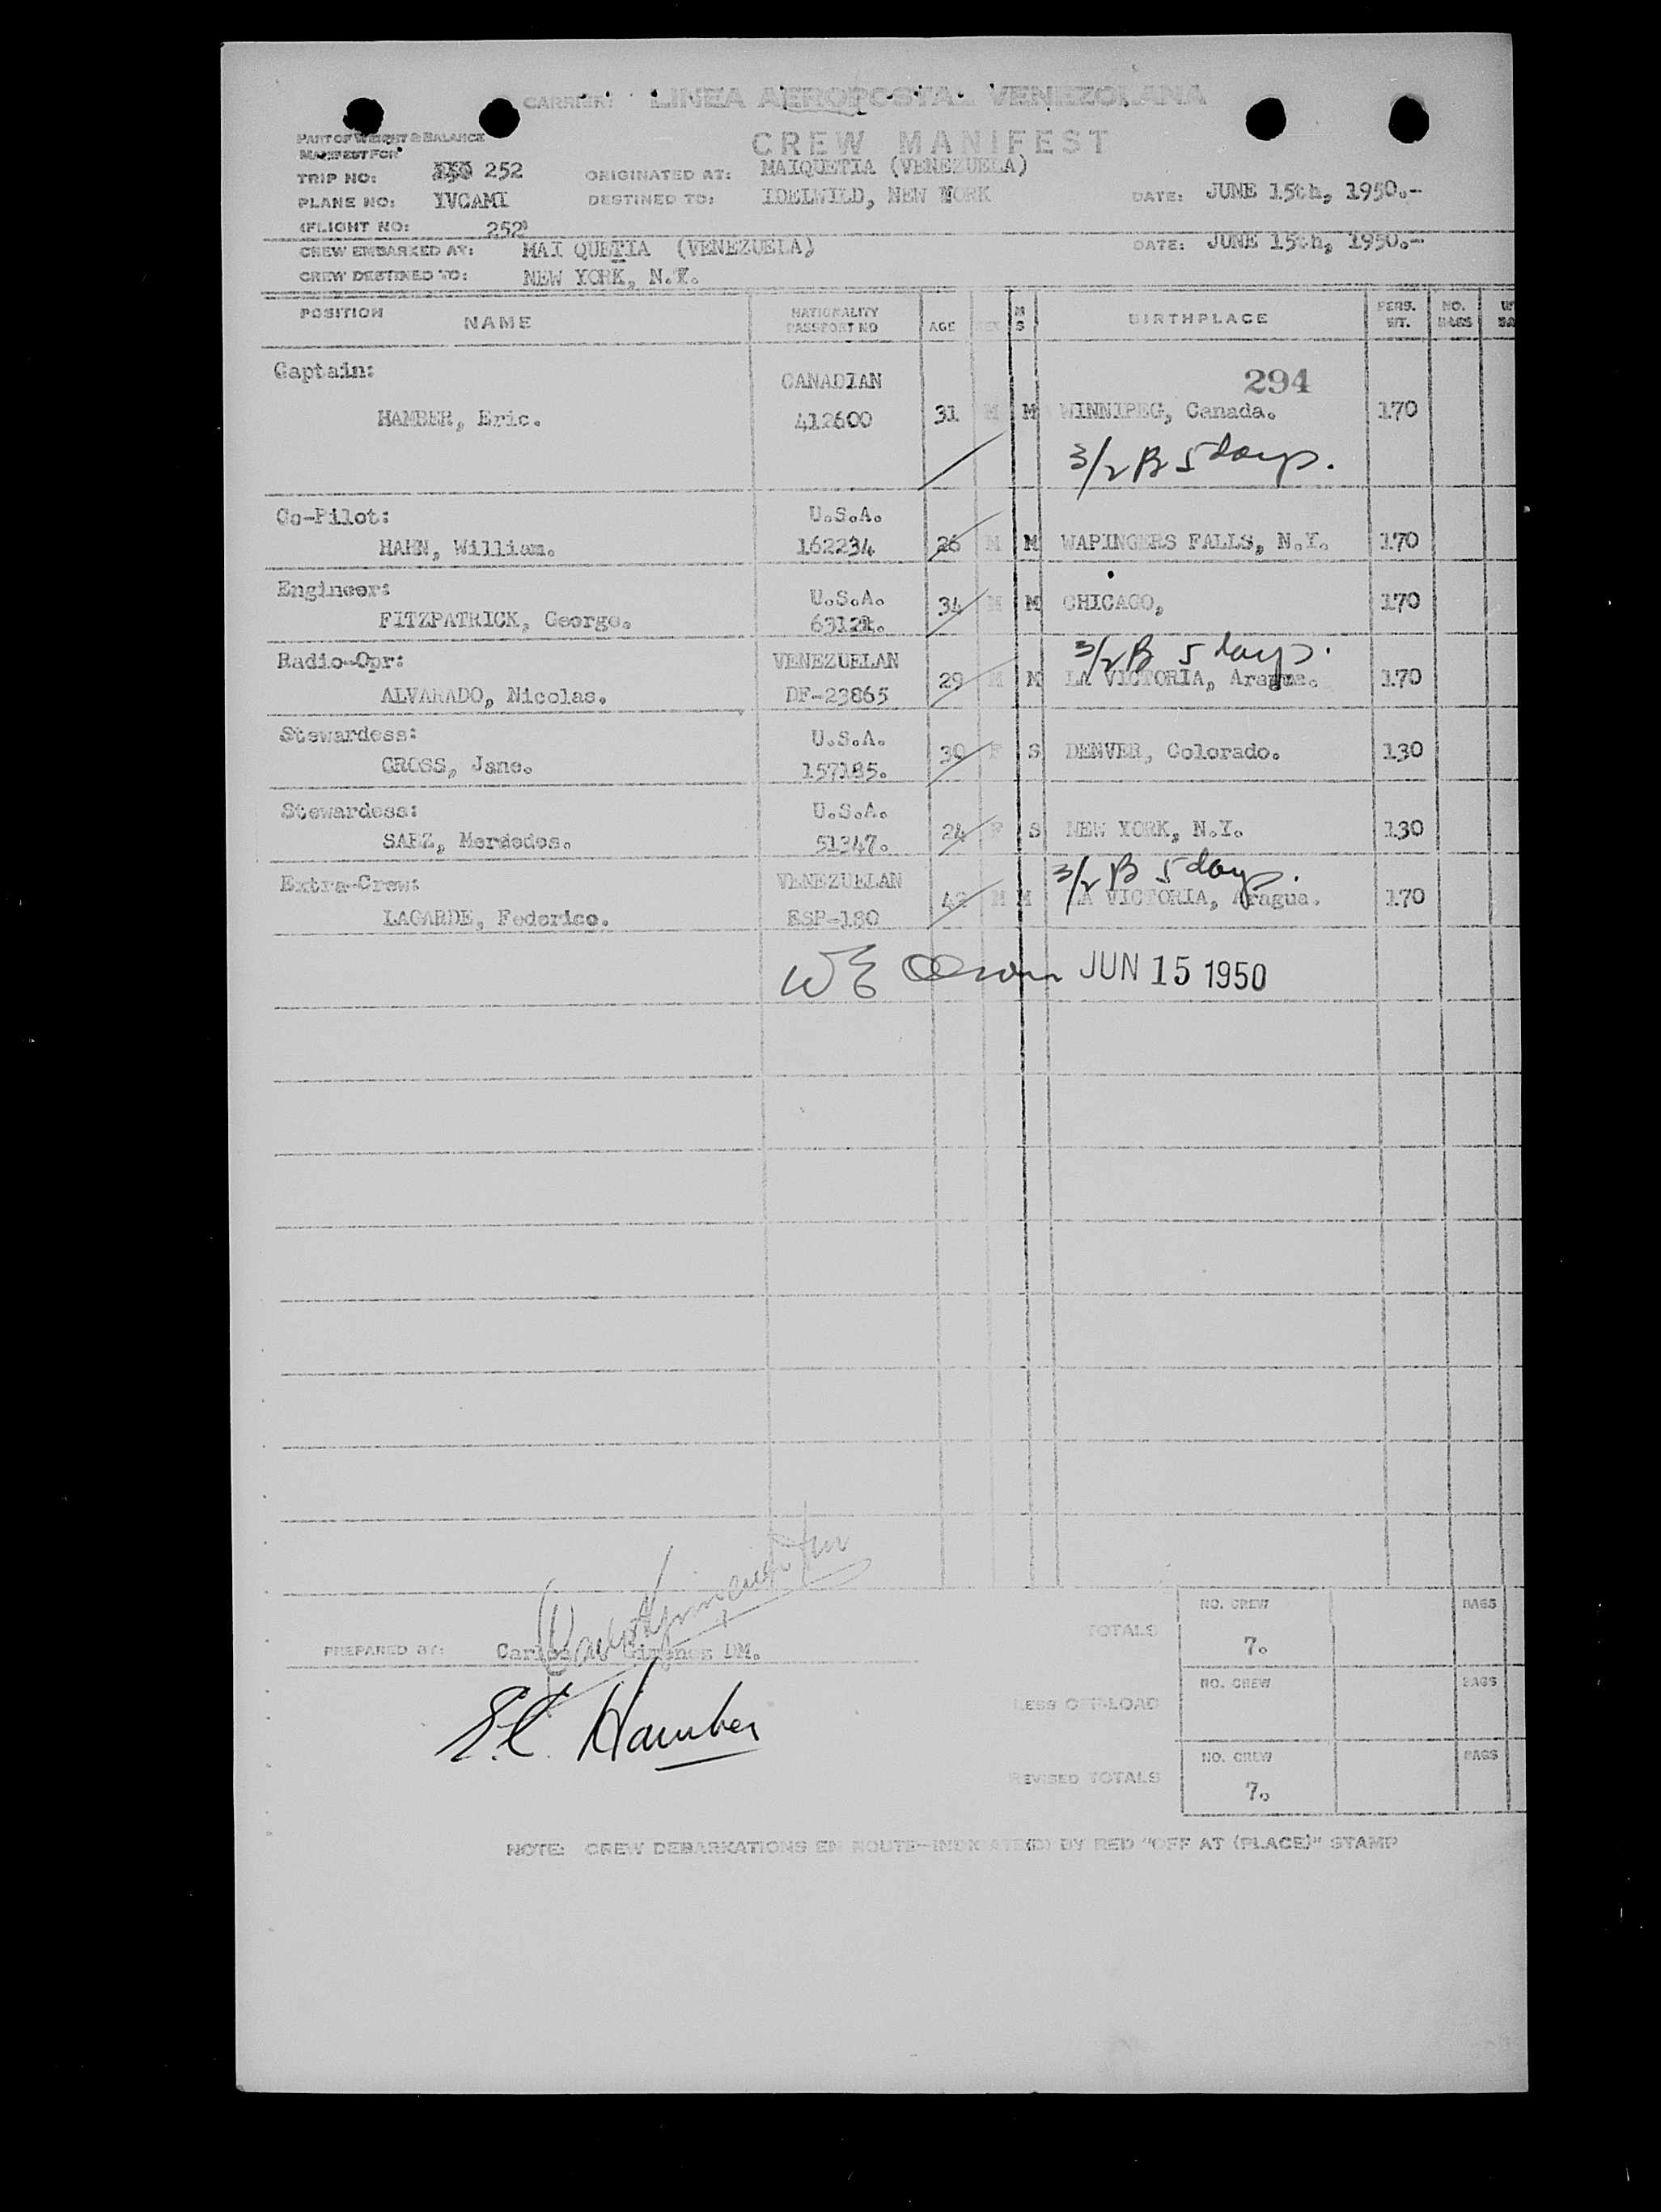 CARRIER: LINEA AEROPOSTAL VENEZOLANA
CREW MANIFEST
PART OF WEIGHT & BALANCE
MANIFEST FOR
TRIP NO: 252 ORIGINATED AT: MAIQUETIA (VENEZUELA)
PLANE NO: YVCAMI DESTINED TO: IDELWILD, NEW YORK DATE: JUNE 15th, 1950.-
(FLIGHT NO: 252
CREW EMBARKED AT: MAI QUETIA (VENEZUELA) DATE: JUNE 15th, 1950.-
CREW DESTINED TO: NEW YORK, N.Y.
POSITION NAME NATIONALITY PASSPORT NO AGE SEX M S BIRTHPLACE PERS. WT. NO. BAGS
Captain: CANADIAN 294
HAMBER, Eric. 412600 31 M M WINNIPEG, Canada. 170
3/2 B 5 days.
Co-Pilot: U.S.A.
HAHN, William. 162234 26 M M WAPINGERS FALLS, N.Y. 170
Engineer: U.S.A.
FITZPATRICK, George. 63121. 34 M M CHICAGO, 170
3/2 B 5 days.
Radio-Opr: VENEZUELAN
ALVARADO, Nicolas. DF-23865 29 M M LA VICTORIA, Aragua. 170
Stewardess: U.S.A.
GROSS, Jane. 157185. 30 F S DENVER, Colorado. 130
Stewardess: U.S.A.
SAEZ, Mercedes. 51347. 24 F S NEW YORK, N.Y. 130
3/2 B 5 days.
Extra-Crew: VENEZUELAN
LAGARDE, Federico. ESP-180 42 M M LA VICTORIA, Aragua. 170
W E JUN 15 1950
TOTALS NO. CREW 7. BAGS
PREPARED BY: Carlos Gimenez DM.
LESS OFF-LOAD NO. CREW BAGS
E.C. Hamber
REVISED TOTALS NO. CREW 7. BAGS
NOTE: CREW DEBARKATIONS EN ROUTE-INDICATE(D) BY RED "OFF AT (PLACE)" STAMP